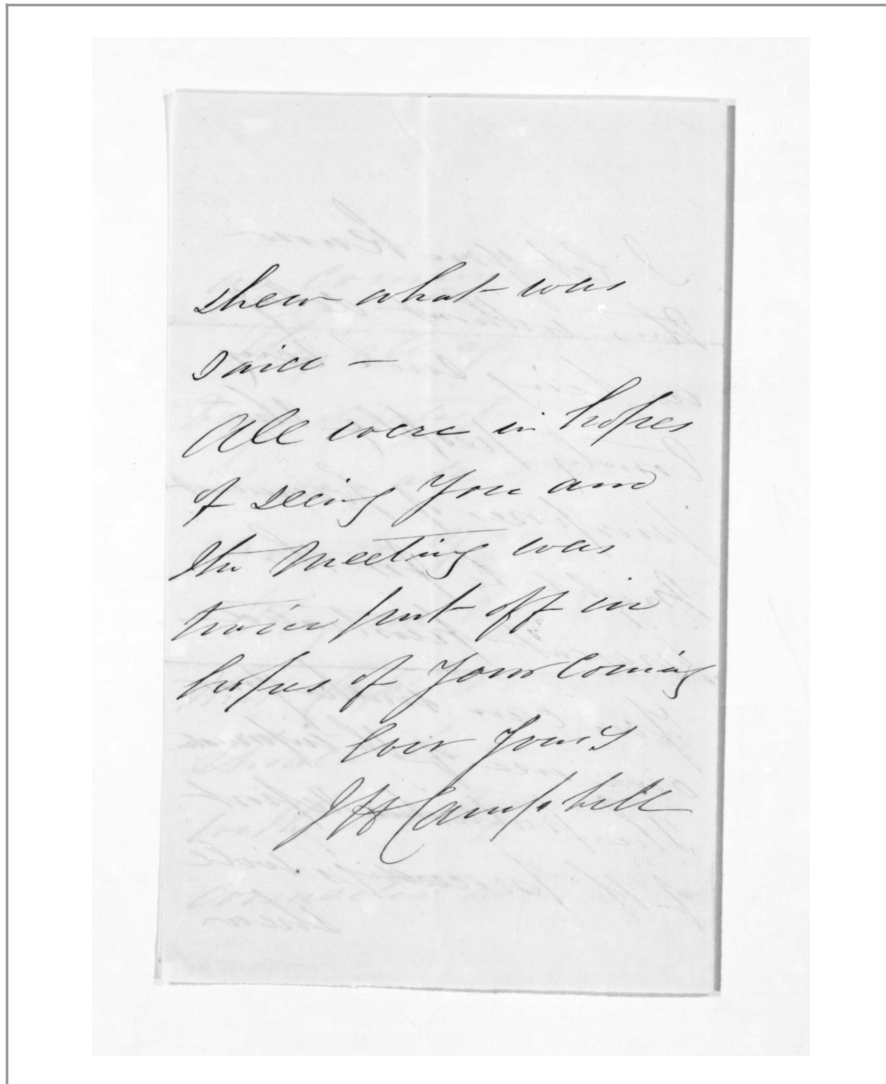 shew what was
said –
All were in hopes
of seeing You and
the Meeting was
twice put off in
hopes of Your Coming
Ever Yours
J H Campbell